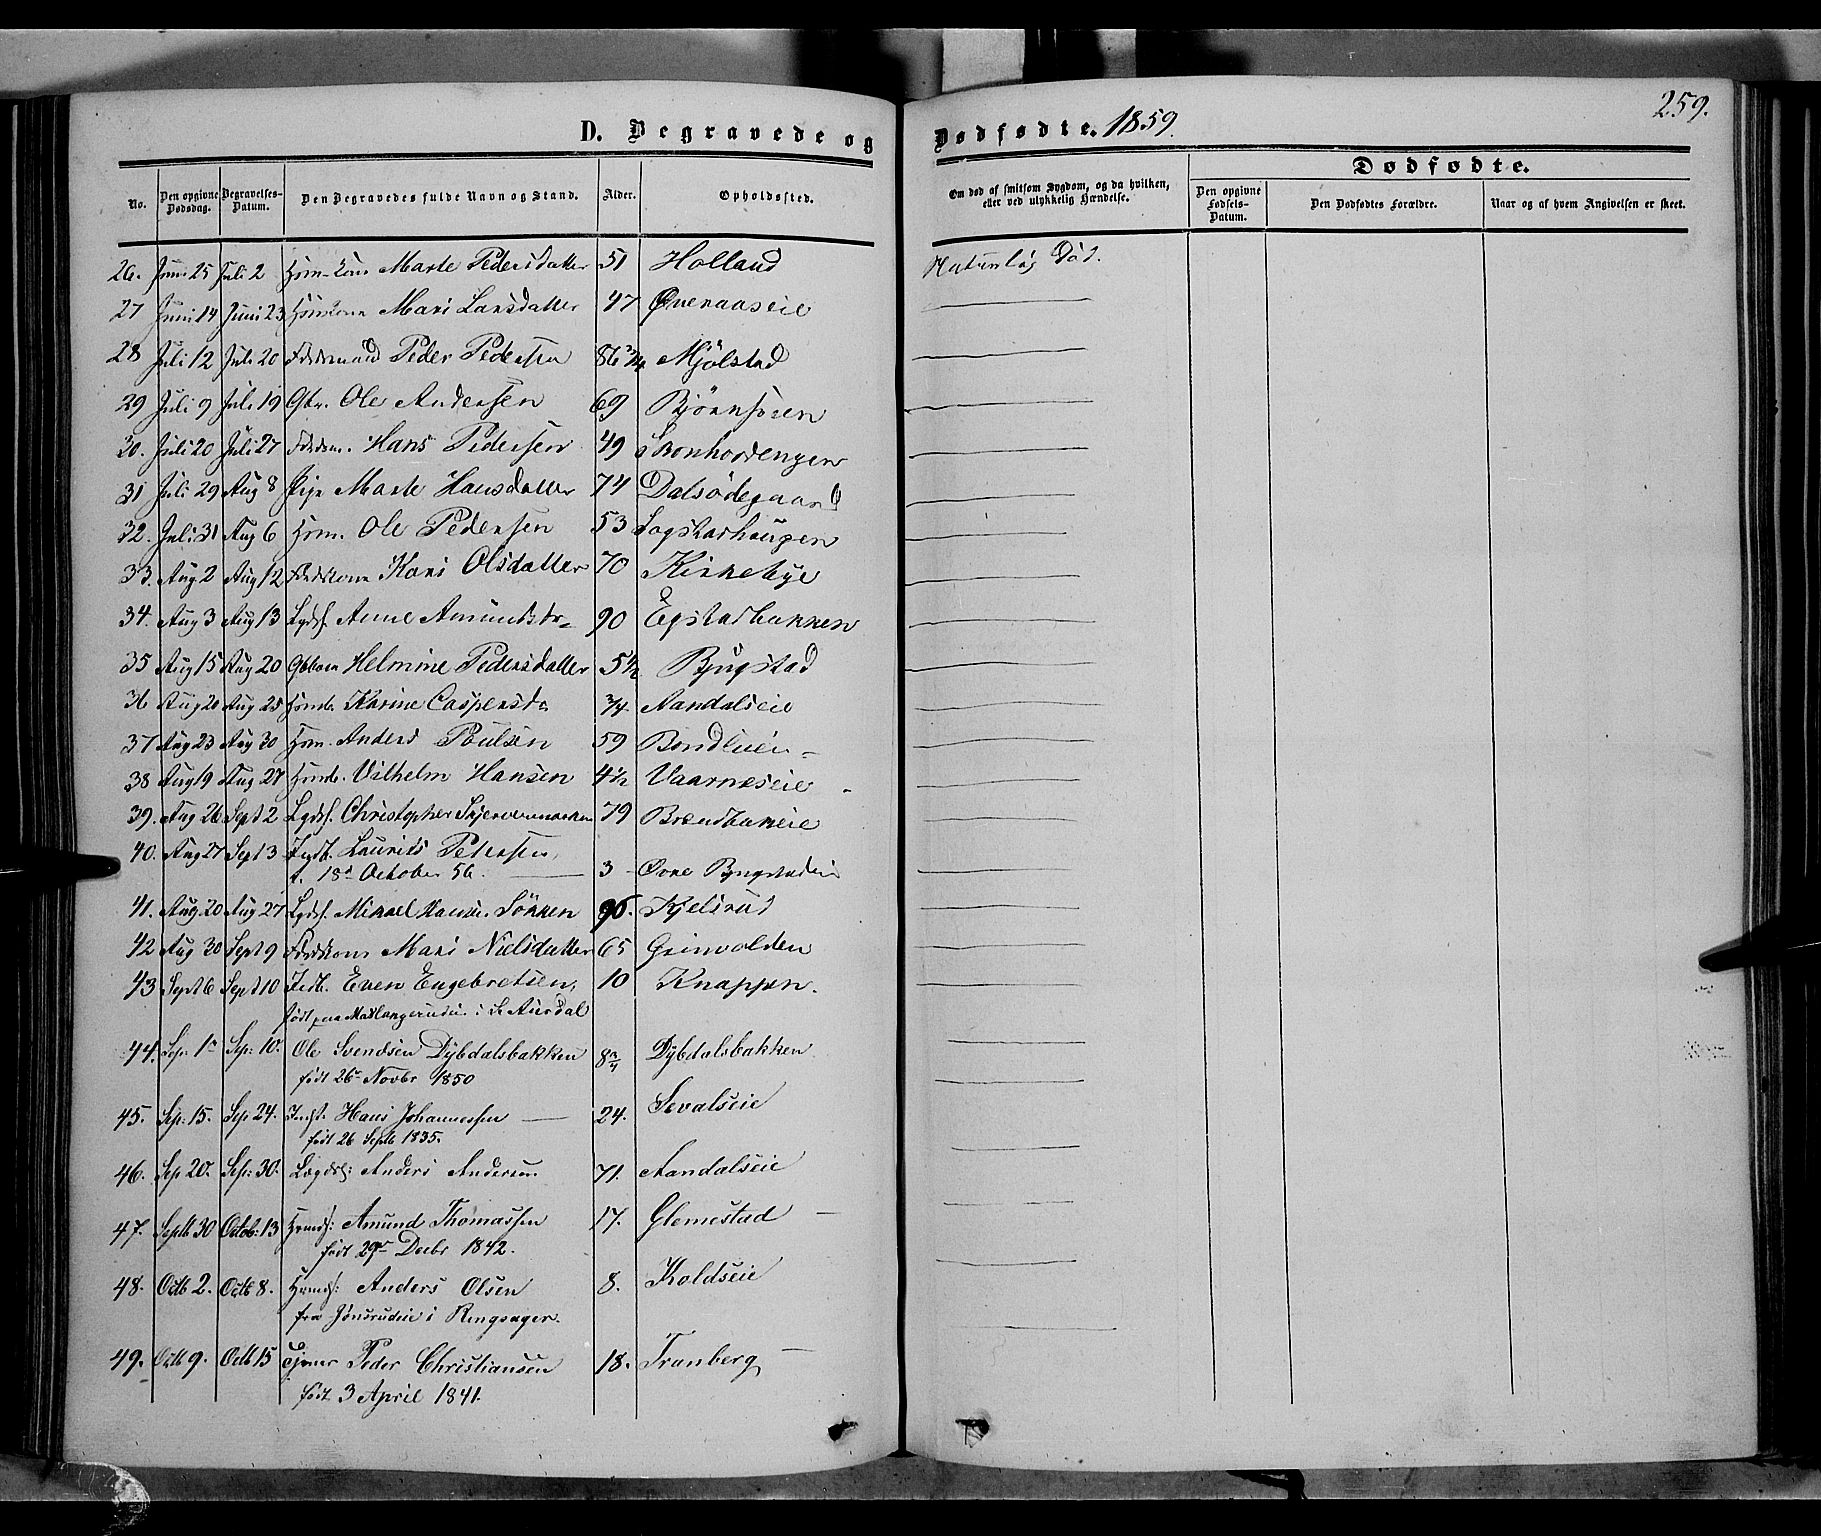 259.
D. Begravede og Dødfødte. 1859.
Dødfødte.
No.
Den opgivne Dødsdag.
Begravelses-Datum.
Den Begravedes fulde Navn og Stand.
Alder.
Opholdssted.
Om død af smitsom Sygdom, og da hvilken, eller ved ulykkelig Hændelse.
Den opgivne Fødsels-Datum.
Den Dødfødtes Forældre.
Naar og af hvem Angivelsen er skeet.
26. Juni 25 Juli 2 Marte Pedersdatter 51 Holland Naturlig Død.
27 Juni 14 Juni 23 Mari Larsdatter 47 Qvenaaseie
28 Juli 12 Juli 20 Peder Pedersen 86 3/4 Mjölstad
29 Juli 9 Juli 19 Gbr. Ole Andersen 69 Björnsveen
30. Juli 20 Juli 27 Hans Pedersen 49
31 Juli 29 Aug 8 Pige Marte Hansdatter 74 Dalsödegaard
32. Juli 31 Aug 6 Hsm. Ole Pedersen 53
33. Aug 2 Aug 12 Kari Olsdatter 70 Kirkebye
34. Aug 3 Aug 13 Lgdsl. Anne Amundsdr 90 Egstadbakken
35 Aug 15 Aug 20 Helmine Pedersdatter 5 1/2 Bjugstad
36 Aug 20 Aug 25 Karine Caspersdr 3/4 Aandalseie
37 Aug 23 Aug 30 Hsm. Anders Poulsen 59 Bondlien
38 Aug 19 Aug 27 Vilhelm Hansen 4 1/2 Vaarneseie
39. Aug 26 Sept 2 Lgdsl. Christopher 79
40. Aug 27 Sept 3 Laurits Petersen
f. 18d October 56. 3
41. Aug 20 Aug 27 Lgdsl. Mikael Hansen Sökken 96. Kjelsrud
42 Aug 30 Sept 9 Mari Nielsdatter 65 Grinvolden
43 Sept 6 Sept 10 Indb. Even Engebretsen, 10 Knappen.
født paa i S. Aurdal
44. Sep. 1 Sep: 10. Ole Svendsen Dybdalsbakken 8 3/4 Dybdalsbakken
født 26 Novbr 1850
45. Sep: 15. Sep 24. Inst. Hans Johannessen 24. Sevalseie
født 26 Septb 1835.
46. Sep 20. Sep: 30. Lægdsl: Anders Andersen 71. Aandalseie
47. Septb 30 Octob: 13 Amund Thomassen 17. Glemestad
født 29 Decbr 1842.
48. Octb 2. Octb 8. Anders Olsen 8. Koldseie
fra Jönsrudeie i Ringsager.
49. Octb 9. Octb 15 Tjener Peder Christiansen 18. Tranberg
født 3 April 1841.